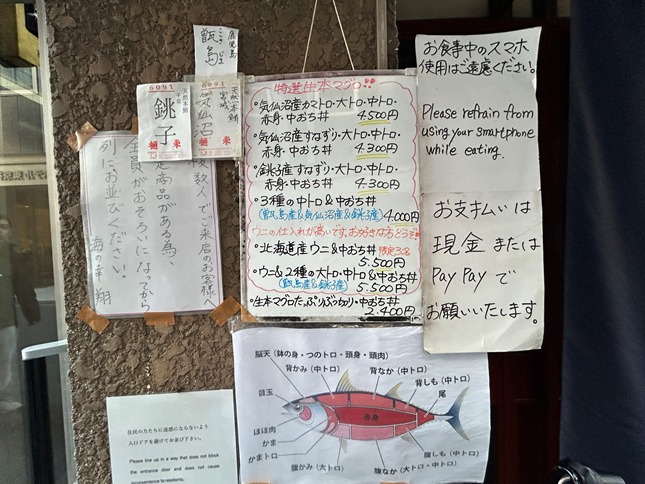 鹿児島
こしき じま
甑島
6091
天然本鮪
千葉
銚子
樋長
6091
天然本鮪
宮城
気仙沼
樋長
複数人でご来店のお客様へ
限定商品がある為、
全員がおそろいになってから
列にお並びください。
海の幸 翔
特選生本マグロ!!
・気仙沼産カマトロ・大トロ・中トロ・
赤身・中おち丼 4500円
・気仙沼産すねずり・大トロ・中トロ・
赤身・中おち丼 4300円
・銚子産すねずり・大トロ・中トロ・
赤身・中おち丼 4300円
・3種の中トロ&中おち丼
(甑島産&気仙沼産&銚子産) 4,000円
ウニの仕入れが高いです。お好きな方どうぞ!!
・北海道産ウニ&中おち丼 限定3名
5.500円
・ウニ&2種の大トロ・中トロ&中おち丼
(甑島産&銚子産) 5.500円
・生本マグロたっぷりぶつかり・中おち丼
2.400円
お食事中のスマホ
使用はご遠慮ください。
Please refrain from
using your smartphone
while eating.
お支払いは
現金または
PayPayで
お願いいたします。
脳天(鉢の身・つのトロ・頭身・頭肉)
背かみ(中トロ)
背なか(中トロ)
背しも(中トロ)
尾
目玉
赤身
ほほ肉
かま
かまトロ
腹かみ(大トロ)
腹なか(大トロ・中トロ)
腹しも(中トロ)
住民の方たちに迷惑にならないよう
入口ドアを避けてお並び下さい。
Please line up in a way that does not block
the entrance door and does not cause
inconvenience to residents.